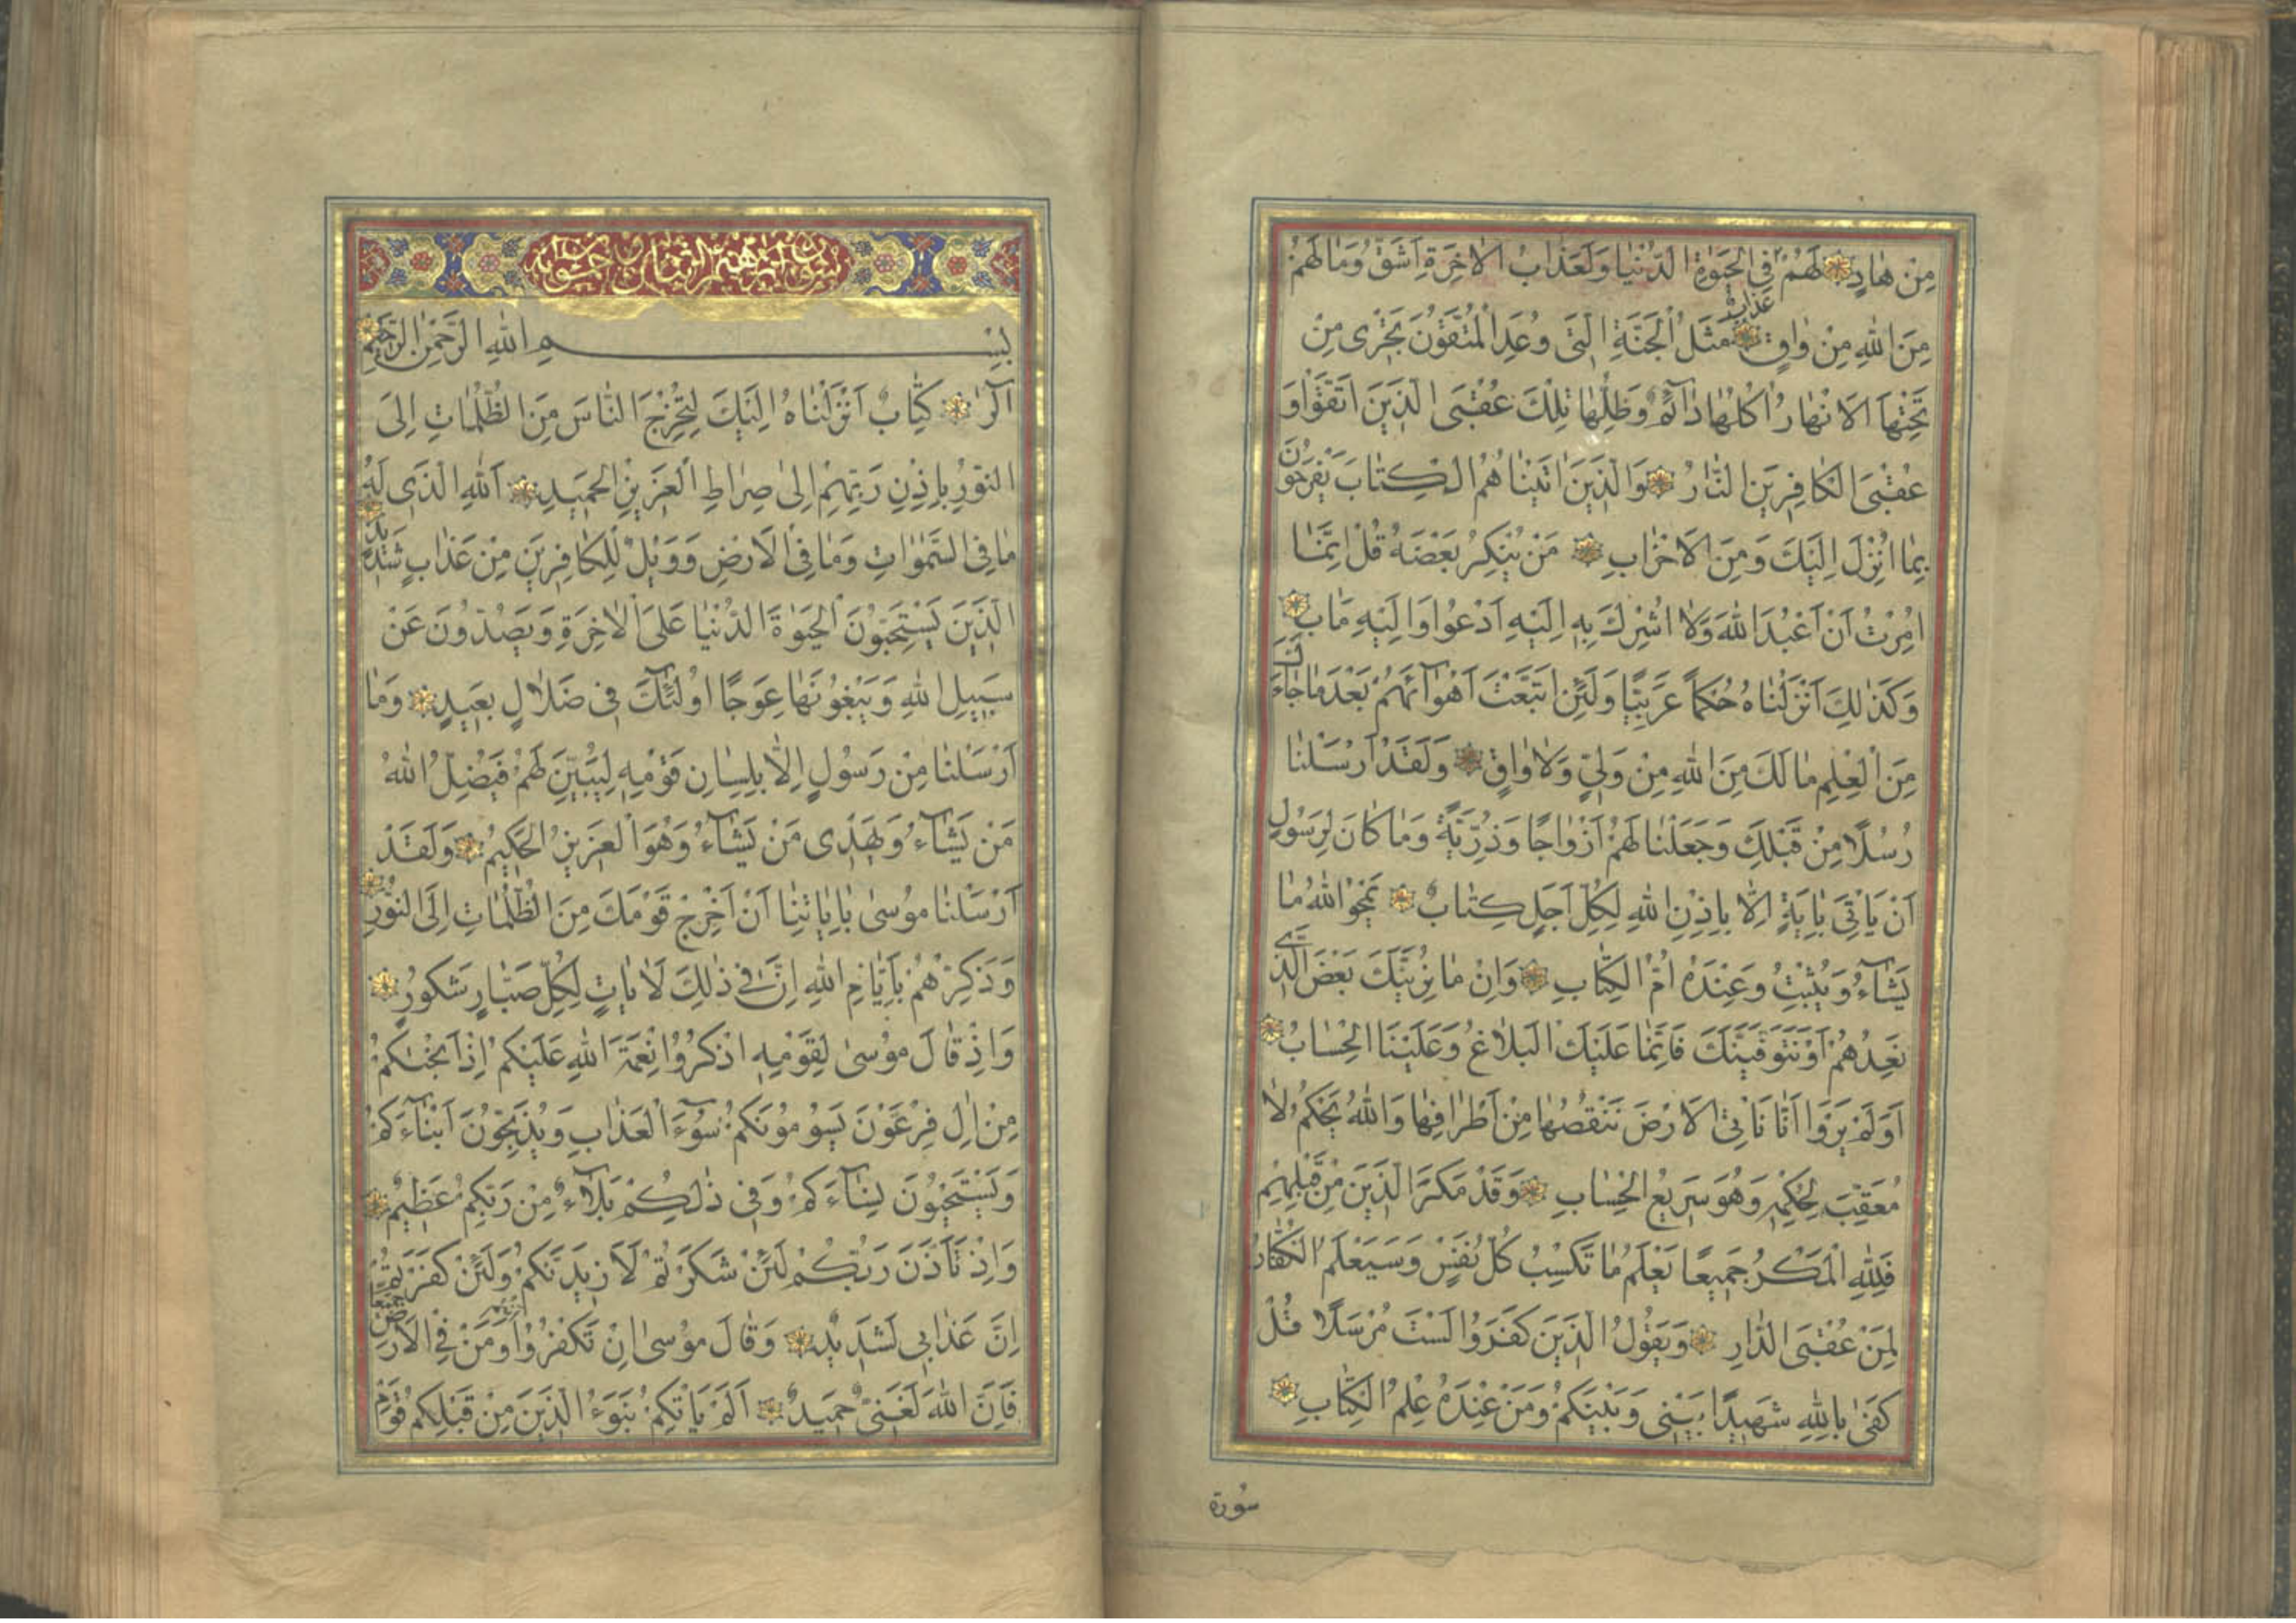 مِنْ هَادٍ لَهُمْ عَذَابٌ فِي الْحَيٰوةِ الدُّنْيَا وَلَعَذَابُ الْاٰخِرَةِ اَشَقُّ وَمَا لَهُمْ
مِنَ اللهِ مِنْ وَاقٍ مَثَلُ الْجَنَّةِ الَّتِي وُعِدَ الْمُتَّقُونَ تَجْرِي مِنْ
تَحْتِهَا الْاَنْهَارُ اُكُلُهَا دَآئِمٌ وَظِلُّهَا تِلْكَ عُقْبَى الَّذِينَ اتَّقَوْا وَ
عُقْبَى الْكَافِرِينَ النَّارُ وَالَّذِينَ اٰتَيْنَاهُمُ الْكِتَابَ يَفْرَحُونَ
بِمَا اُنْزِلَ اِلَيْكَ وَمِنَ الْاَحْزَابِ مَنْ يُنْكِرُ بَعْضَهُ قُلْ اِنَّمَا
اُمِرْتُ اَنْ اَعْبُدَ اللهَ وَلَا اُشْرِكَ بِهِ اِلَيْهِ اَدْعُوا وَاِلَيْهِ مَاٰبِ
وَكَذٰلِكَ اَنْزَلْنَاهُ حُكْمًا عَرَبِيًّا وَلَئِنِ اتَّبَعْتَ اَهْوَآئَهُمْ بَعْدَمَا جَاءَكَ
مِنَ الْعِلْمِ مَا لَكَ مِنَ اللهِ مِنْ وَلِيٍّ وَلَا وَاقٍ وَلَقَدْ اَرْسَلْنَا
رُسُلًا مِنْ قَبْلِكَ وَجَعَلْنَا لَهُمْ اَزْوَاجًا وَذُرِّيَّةً وَمَا كَانَ لِرَسُولٍ
اَنْ يَاْتِيَ بِاٰيَةٍ اِلَّا بِاِذْنِ اللهِ لِكُلِّ اَجَلٍ كِتَابٌ يَمْحُوا اللهُ مَا
يَشَآءُ وَيُثْبِتُ وَعِنْدَهُ اُمُّ الْكِتَابِ وَاِنْ مَا نُرِيَنَّكَ بَعْضَ الَّذِي
نَعِدُهُمْ اَوْ نَتَوَفَّيَنَّكَ فَاِنَّمَا عَلَيْكَ الْبَلَاغُ وَعَلَيْنَا الْحِسَابُ
اَوَلَمْ يَرَوْا اَنَّا نَاْتِي الْاَرْضَ نَنْقُصُهَا مِنْ اَطْرَافِهَا وَاللهُ يَحْكُمُ لَا
مُعَقِّبَ لِحُكْمِهِ وَهُوَ سَرِيعُ الْحِسَابِ وَقَدْ مَكَرَ الَّذِينَ مِنْ قَبْلِهِمْ
فَلِلّٰهِ الْمَكْرُ جَمِيعًا يَعْلَمُ مَا تَكْسِبُ كُلُّ نَفْسٍ وَسَيَعْلَمُ الْكُفَّارُ
لِمَنْ عُقْبَى الدَّارِ وَيَقُولُ الَّذِينَ كَفَرُوا لَسْتَ مُرْسَلًا قُلْ
كَفٰى بِاللهِ شَهِيدًا بَيْنِي وَبَيْنَكُمْ وَمَنْ عِنْدَهُ عِلْمُ الْكِتَابِ
سُورة
بِسْمِ اللهِ الرَّحْمٰنِ الرَّحِيمِ
الٓرٰ كِتَابٌ اَنْزَلْنَاهُ اِلَيْكَ لِتُخْرِجَ النَّاسَ مِنَ الظُّلُمَاتِ اِلَى
النُّورِ بِاِذْنِ رَبِّهِمْ اِلٰى صِرَاطِ الْعَزِيزِ الْحَمِيدِ اَللهِ الَّذِي لَهُ
مَا فِي السَّمٰوَاتِ وَمَا فِي الْاَرْضِ وَوَيْلٌ لِلْكَافِرِينَ مِنْ عَذَابٍ شَدِيدٍ
الَّذِينَ يَسْتَحِبُّونَ الْحَيٰوةَ الدُّنْيَا عَلَى الْاٰخِرَةِ وَيَصُدُّونَ عَنْ
سَبِيلِ اللهِ وَيَبْغُونَهَا عِوَجًا اُولٰئِكَ فِي ضَلَالٍ بَعِيدٍ وَمَا
اَرْسَلْنَا مِنْ رَسُولٍ اِلَّا بِلِسَانِ قَوْمِهِ لِيُبَيِّنَ لَهُمْ فَيُضِلُّ اللهُ
مَنْ يَشَآءُ وَيَهْدِي مَنْ يَشَآءُ وَهُوَ الْعَزِيزُ الْحَكِيمُ وَلَقَدْ
اَرْسَلْنَا مُوسٰى بِاٰيَاتِنَا اَنْ اَخْرِجْ قَوْمَكَ مِنَ الظُّلُمَاتِ اِلَى النُّورِ
وَذَكِّرْهُمْ بِاَيَّامِ اللهِ اِنَّ فِي ذٰلِكَ لَاٰيَاتٍ لِكُلِّ صَبَّارٍ شَكُورٍ
وَاِذْ قَالَ مُوسٰى لِقَوْمِهِ اذْكُرُوا نِعْمَةَ اللهِ عَلَيْكُمْ اِذْ اَنْجٰىكُمْ
مِنْ اٰلِ فِرْعَوْنَ يَسُومُونَكُمْ سُوٓءَ الْعَذَابِ وَيُذَبِّحُونَ اَبْنَآءَكُمْ
وَيَسْتَحْيُونَ نِسَآءَكُمْ وَفِي ذٰلِكُمْ بَلَآءٌ مِنْ رَبِّكُمْ عَظِيمٌ
وَاِذْ تَاَذَّنَ رَبُّكُمْ لَئِنْ شَكَرْتُمْ لَاَزِيدَنَّكُمْ وَلَئِنْ كَفَرْتُمْ
اِنَّ عَذَابِي لَشَدِيدٌ وَقَالَ مُوسٰى اِنْ تَكْفُرُوا اَنْتُمْ وَمَنْ فِي الْاَرْضِ جَمِيعًا
فَاِنَّ اللهَ لَغَنِيٌّ حَمِيدٌ اَلَمْ يَاْتِكُمْ نَبَؤُا الَّذِينَ مِنْ قَبْلِكُمْ قَوْمِ